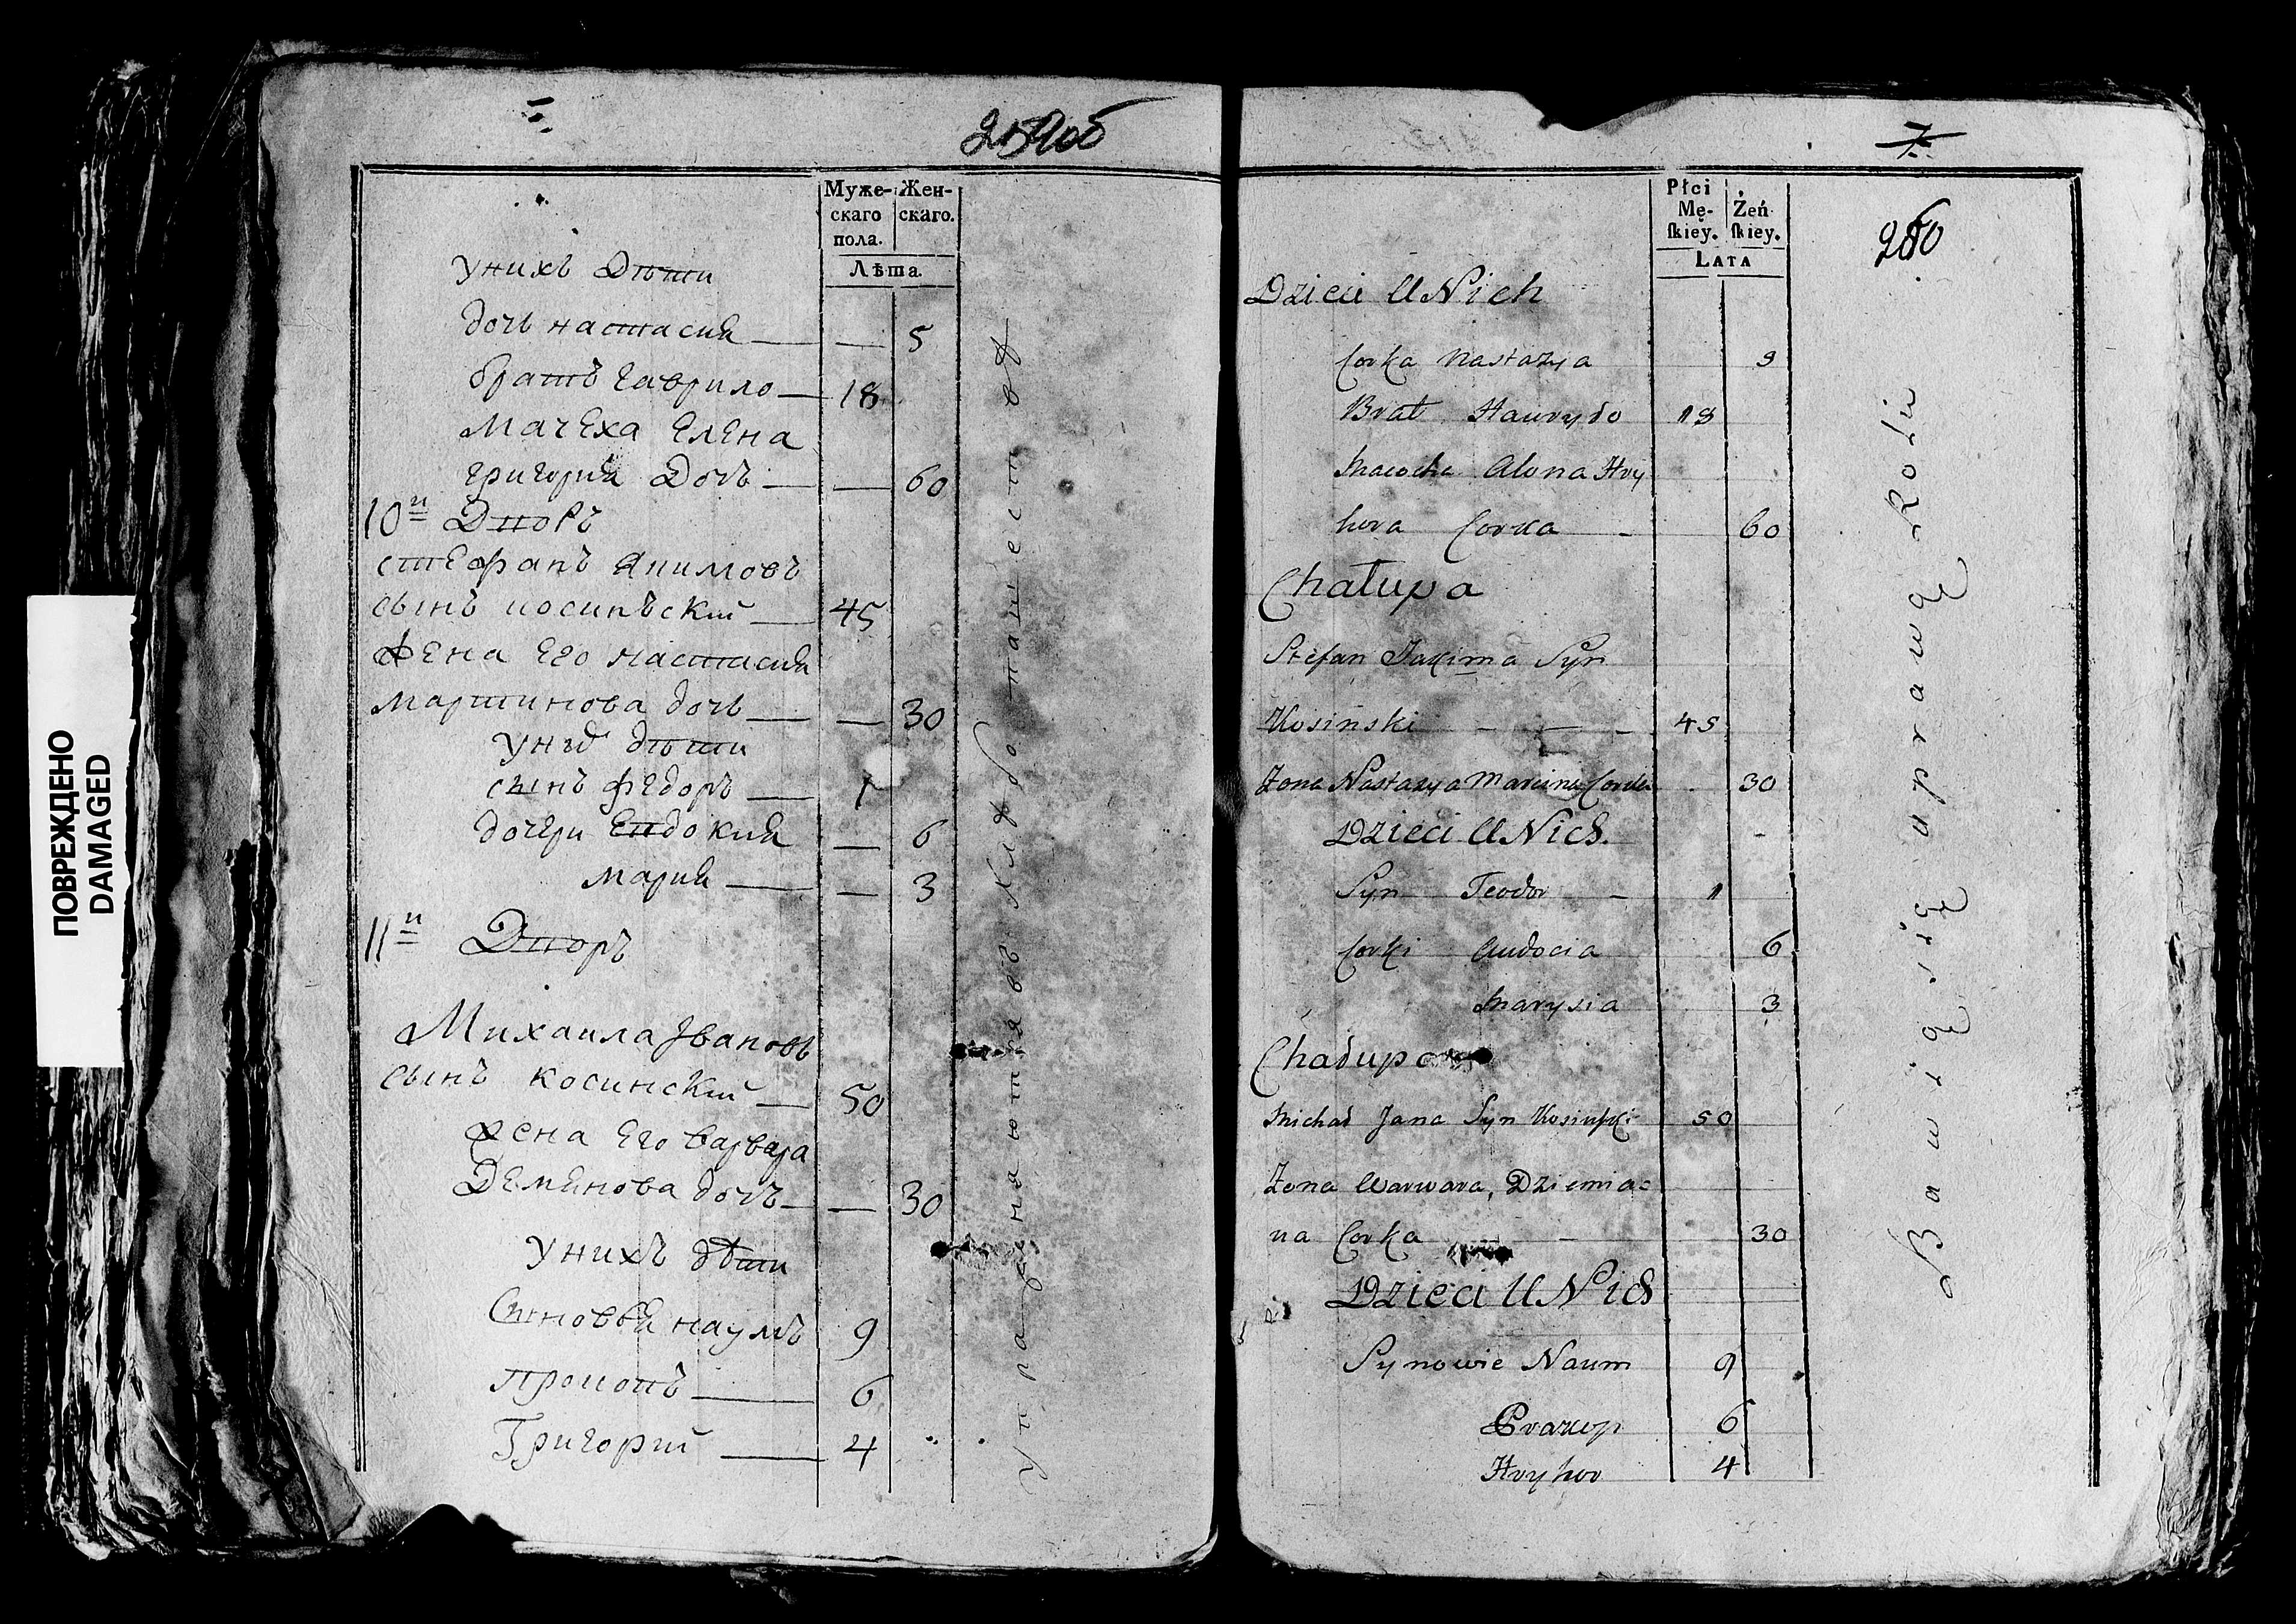 ПОВРЕЖДЕНО
DAMAGED
259об
Муже-
скаго
пола.
Жен-
скаго.
Лѣта.
унихъ Дѣти
дочь настасия — — 5
братъ гаврило — 18
Мачеха Елена
григория Дочъ — — 60
10й Дворъ
стефанъ Якимовъ
сынъ косинъский — 45
Жена Его настасия
мартинова дочь — — 30
унихъ дѣти
сынъ федоръ — 1
дочери Евдокия — 6
мария — — 3
11й Дворъ
Михаила Ивановъ
сынъ косинский — 50
жена Его варвара
Демянова дочъ — — 30
унихъ дѣти
Сыновья наумъ 9
прокопъ — 6
Григорий — 4
упражняются в хлѣбопашествѣ
7
260
Płci
Mę-
skiey.
Żeń
skiey.
Lata
Dzieci U Nich
Corka Nastazya 5
Brat Hawryło 18
Macocha Alona Hry
hora Corka - 60
Chałupa
Stefan Jakima Syn
Kosinski - - - 45
Zona Nastazya Marcina Corka 30
Dzieci U Nich.
Syn Teodor - 1
Corki Audocia 6
Marysia 3
Chałupa
Michał Jana Syn Kosinski 50
Zona Warwara, Dziemia=
na Corka - 30
Dzieci U Nich
Synowie Naum 9
Prakop 6
Hryhor 4
Bawią się uprawą Roli